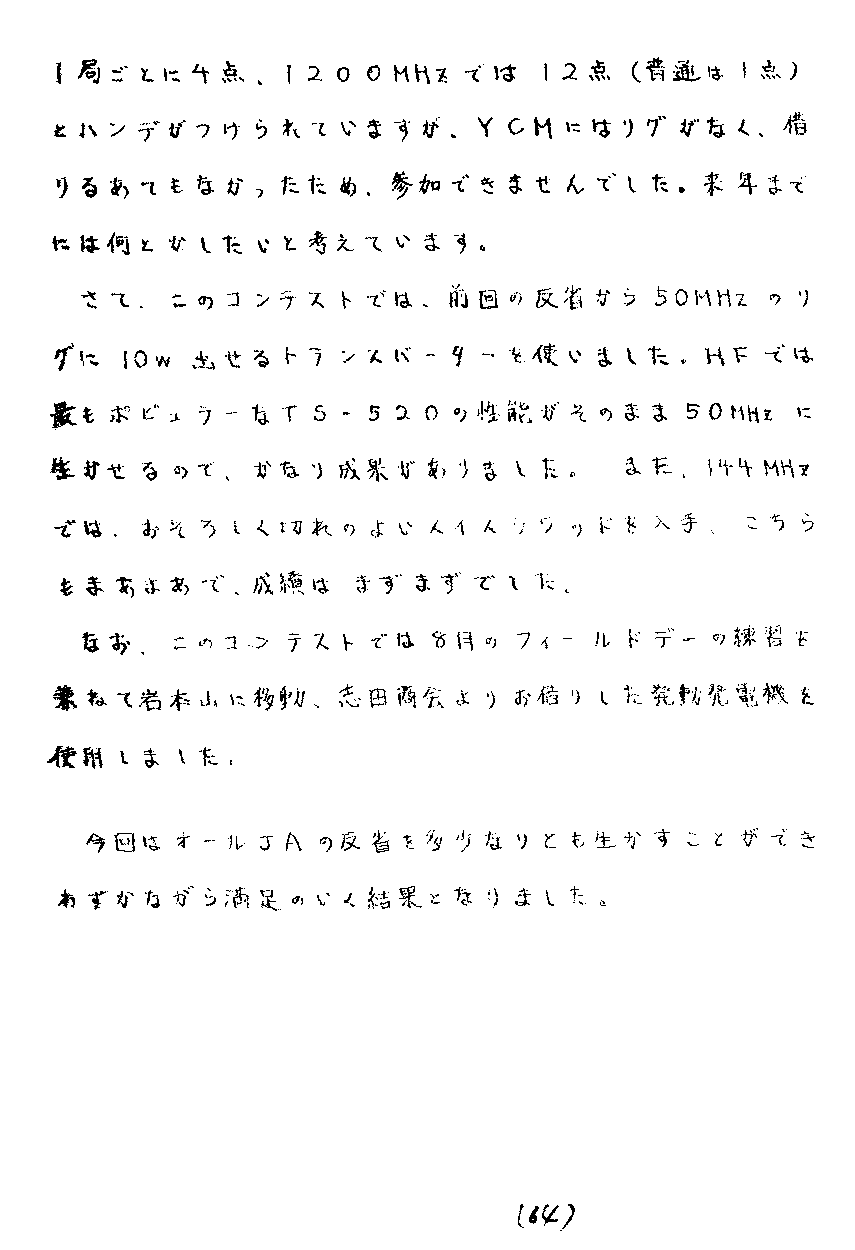 1局ごとに4点、1200MHzでは12点(普通は1点)
とハンデがつけられていますが、YCMにはリグがなく、借
りるあてもなかったため、参加できませんでした。来年まで
には何とかしたいと考えています。
さて、このコンテストでは、前回の反省から50MHzのリ
グに10w出せるトランスバーターを使いました。HFでは
最もポピュラーなTS-520の性能がそのまま50MHzに
生かせるので、かなり成果がありました。 また、144MHz
では、おそろしく切れのよい八木を入手、こちら
もまあまあで、成績はまずまずでした。
なお、このコンテストでは8月のフィールドデーの練習を
兼ねて岩本山に移動、志田商会よりお借りした発動発電機を
使用しました。
今回はオールJAの反省を多少なりとも生かすことができ
わずかながら満足のいく結果となりました。
(64)